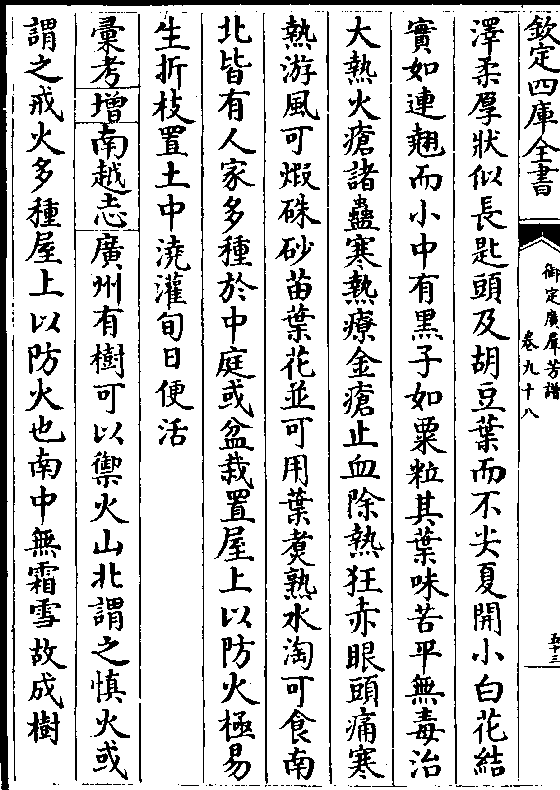 欽定四庫全書
御定廣羣芳譜
卷九十八
五十三
澤柔厚狀似長匙頭及胡豆葉而不尖夏開小白花結
實如連翹而小中有黒子如粟粒其葉味苦平無毒治
大熱火瘡諸蠱寒熱療金瘡止血除熱狂赤眼頭痛寒
熱游風可煅硃砂苗葉花並可用葉煑熟水淘可食南
北皆有人家多種於中庭或盆栽置屋上以防火極易
生折枝置土中澆灌旬日便活
彙考增南越志廣州有樹可以禦火山北謂之慎火或
謂之戒火多種屋上以防火也南中無霜雪故成樹